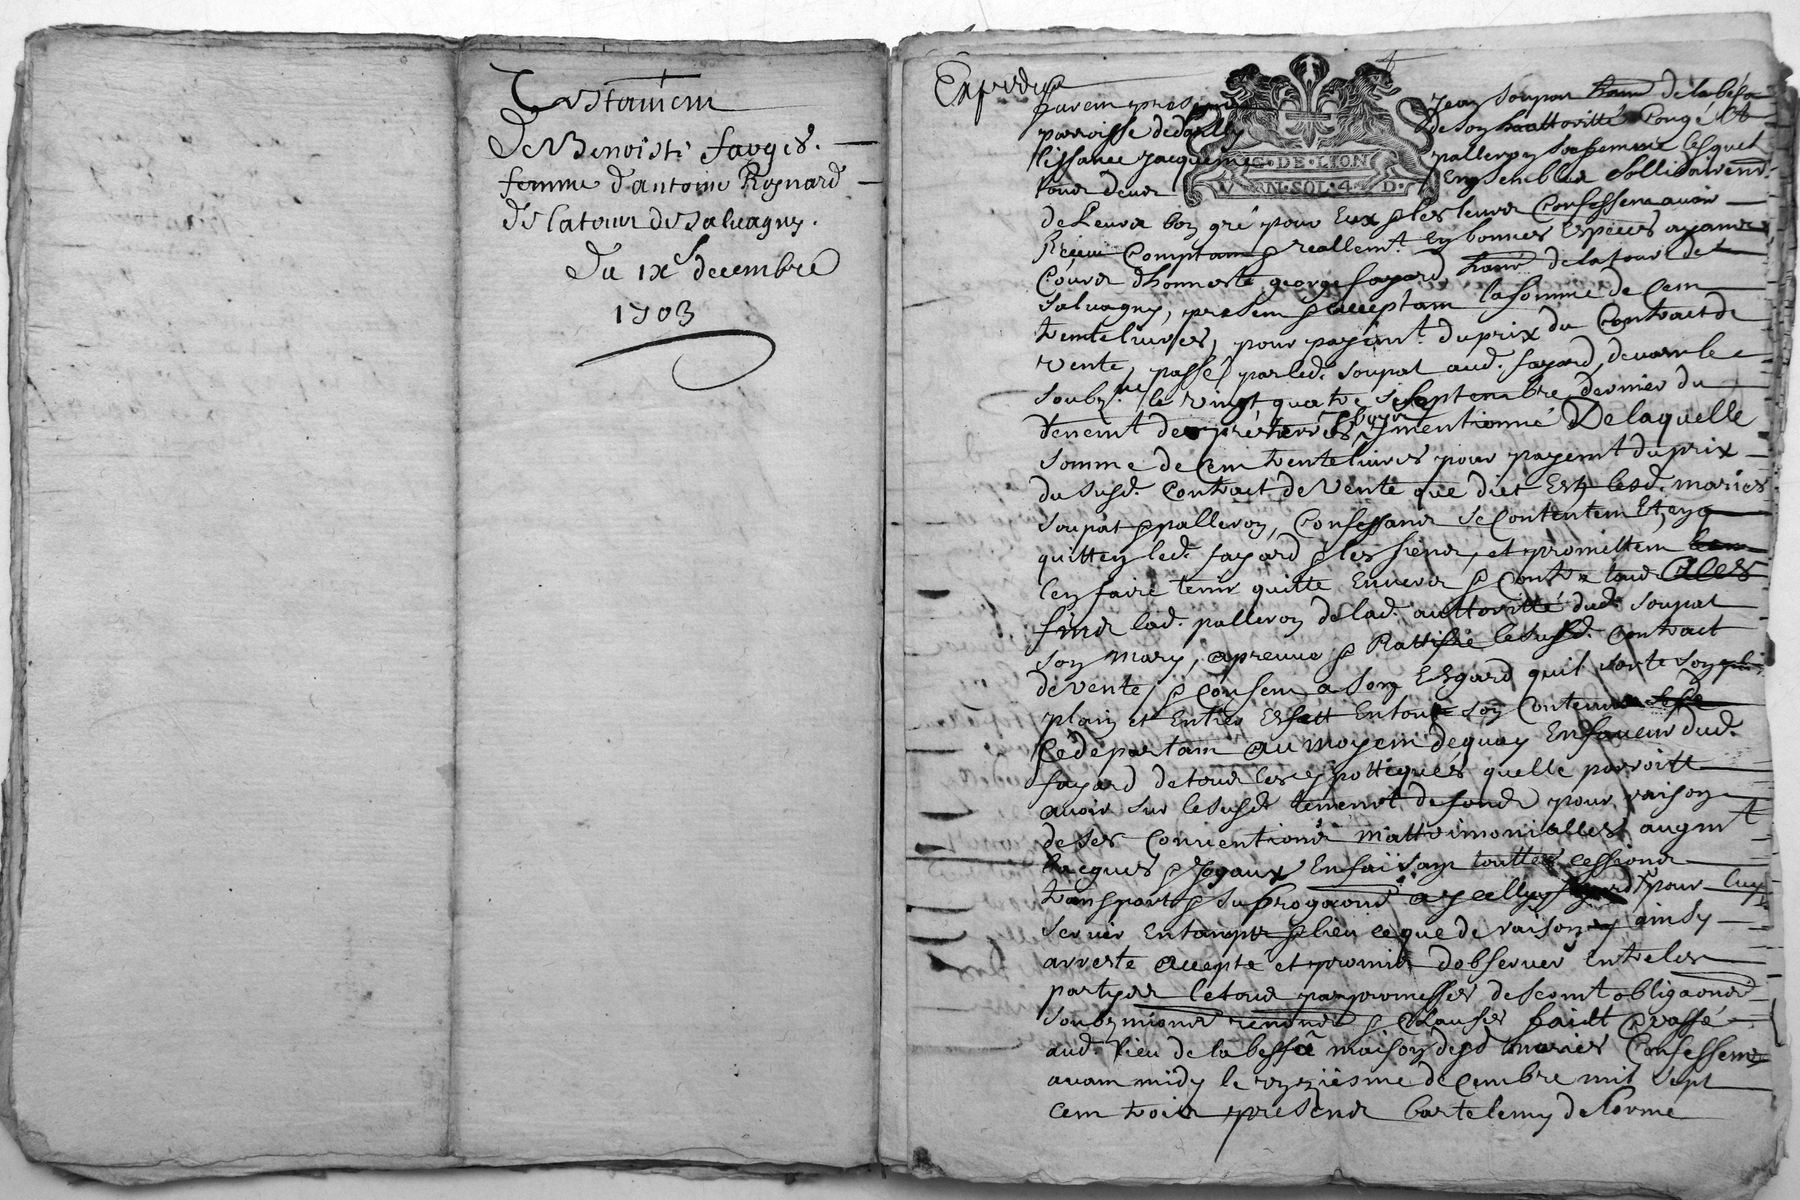 Testament
De Benoiste fauges.
femme d'antoine Rognard
de latour de salvagny.
Du ix.e decembre
1703
Expedié
furent presents Jean soupat de la besse
parroisse de de son authoritté congé et
licence Jacqueme palleron sa femme lesquels
tous deux Ensemble sollidairemt
G·DE·LION
V RN·SOL·4 D·
de leurs bon gré pour eux & les leurs Confessent avoir
Receu Comptant & reallemt. En bonnes Especes ayants
Cours d'honneste george fayard de latour de
salvagny, present & acceptant la somme de Cent
trente livres, pour payemt. du prix du Contract de
vente, passé par led. soupat aud. fayard, devant le
soubz.né le vingt quatre septembre dernier du
tenemt de y mentionné De laquelle
somme de Cent trente livres pour payemt du prix
du susd. Contract de Vente que dict Est lesd. mariés
soupat & palleron, Confessants se Contentent Et en
quitten led. fayard & les siens, et promettent
len faire tenir quitte Envers & Contre tous
lad. palleron de lad. authoritté dud. soupat
son mary, apreuve & Rattifie le susd. Contract
de vente, & Consent a son Esgard quil sorte son
plain et Entier Effect En tout son Contenu
ce departant au moyen de quoy En faveur dud.
fayard de tous les ypotteques quelle porroitt
avoir sur le susd. tenemt de fonds pour raison
de ses Conventions mattrimonialles, augmt
bagues & Joyaux En faisant touttes cessions
transport & subrogaons a y celluy fayard pour luy
servir En temps & lieu ce que de raison ainsy
arresté accepté et promis d'observer Entre les
partyes le tous par promesses de sermt obligaons
soubzmions renons & Clauses faict & passé
aud. lieu de la besse maison desd mariés Confessents
avant midy le onziesme decembre mil sept
cent trois presents bartelemy delorme